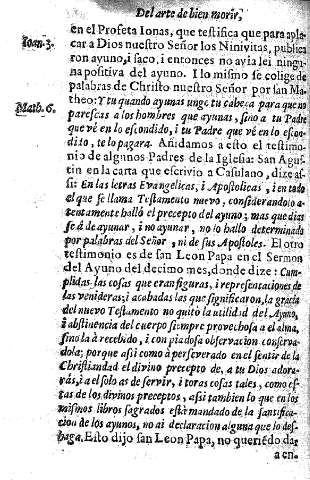 Del arte de bien morir,
en el Profeta Ionas, que testifica que para apla
Ioan. 3.
car a Dios nuestro Señor los Ninivitas, publica
ron ayuno, i saco, i entonces no avia lei ningu
na positiva del ayuno. I lo mismo se colige de
palabras de Christo nuestro Señor por san Ma
Math. 6.
theo: Y tu quando ayunas unge tu cabeça para que no
parescas a los hombres que ayunas, sino a tu Padre
que vé en lo escondido, i tu Padre que vé en lo escon
dido, te lo pagara. Añdamos a esto el testimo
nio de algunos Padres de la Iglesia: San Agus
tin en la carta que escrivio a Casulano, dize as
si: En las letras Evangelicas, i Apostolicas, i en todo
el que se llama Testamento nuevo, considerandolo a
tentamente halló el precepto del ayuno; mas que dias
se á de ayunar, i no ayunar, no lo hallo determinado
por palabras del Señor, ni de sus Apostoles. El otro
testimonio es de san Leon Papa en el Sermon
del Ayuno del decimo mes, donde dize: Cum
plidas las cosas que eran figuras, i representaciones de
las venideras; i acabadas las que significaron, la gracia
del nuevo Testamento no quitò la utilidad del Ayuno,
i abstinencia del cuerpo siempre provechosa a el alma,
sino la à recebido, i con piadosa observacion conserva
dola; porque assi como à perseverado en el sentir de la
Christiandad el divino precepto de, a tu Dios adora
ràs, i a el solo as de servir, i toras cosas tales, como es
tas de los divinos preceptos, assi tambien lo que en los
mismos libros sagrados està mandado de la santifica
cion de los ayunos, no ai declaracion alguna que lo des
haga. Esto dijo san Leon Papa, no queriẽdo dar
a en-